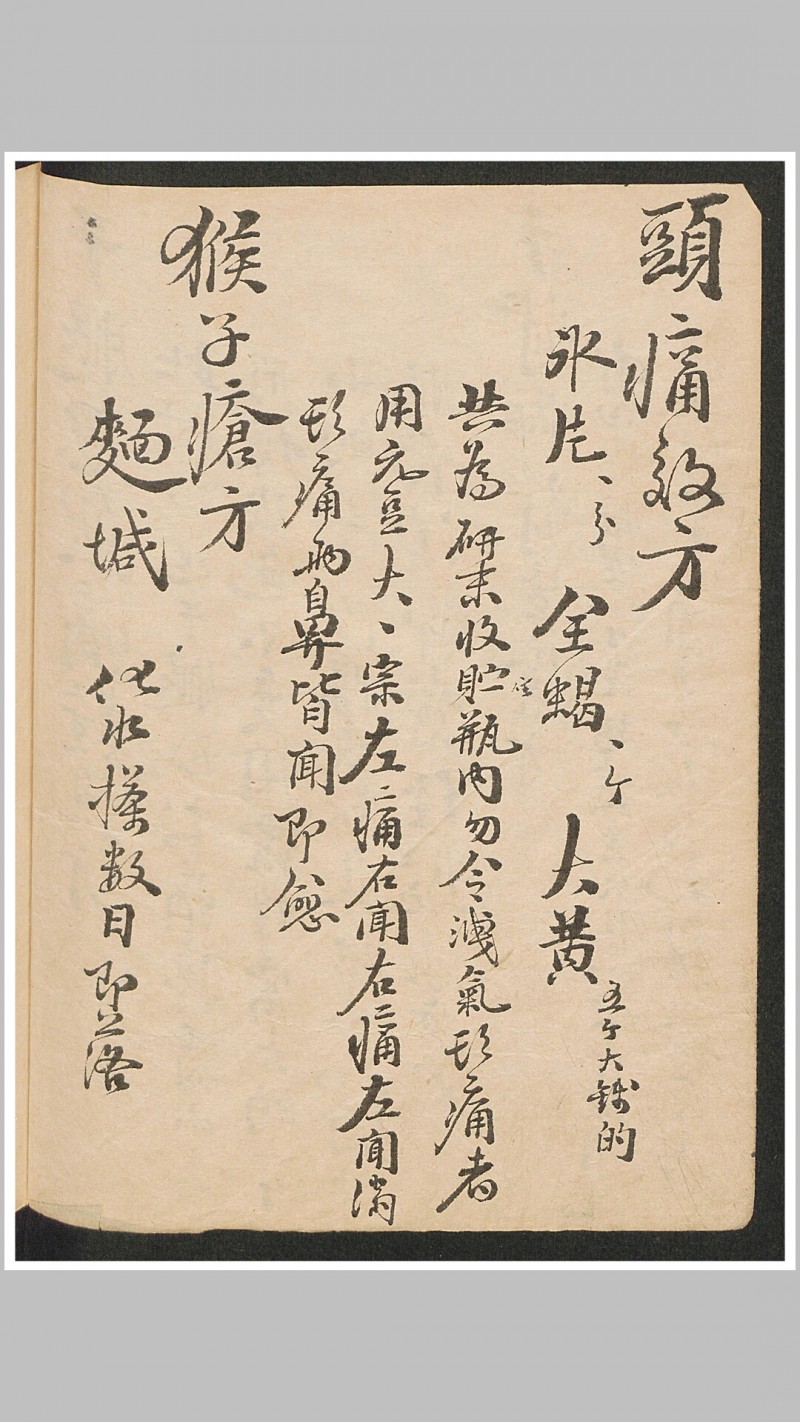 頭痛效方
氷片、分 全蝎、个 大黄 五个大錢的
共為研末收貯瓶内勿令洩氣頭痛者
用元豆大、宗左痛右聞右痛左聞满
頭痛两鼻皆聞即愈
猴子瘡方
麵堿 化水搽数日即落